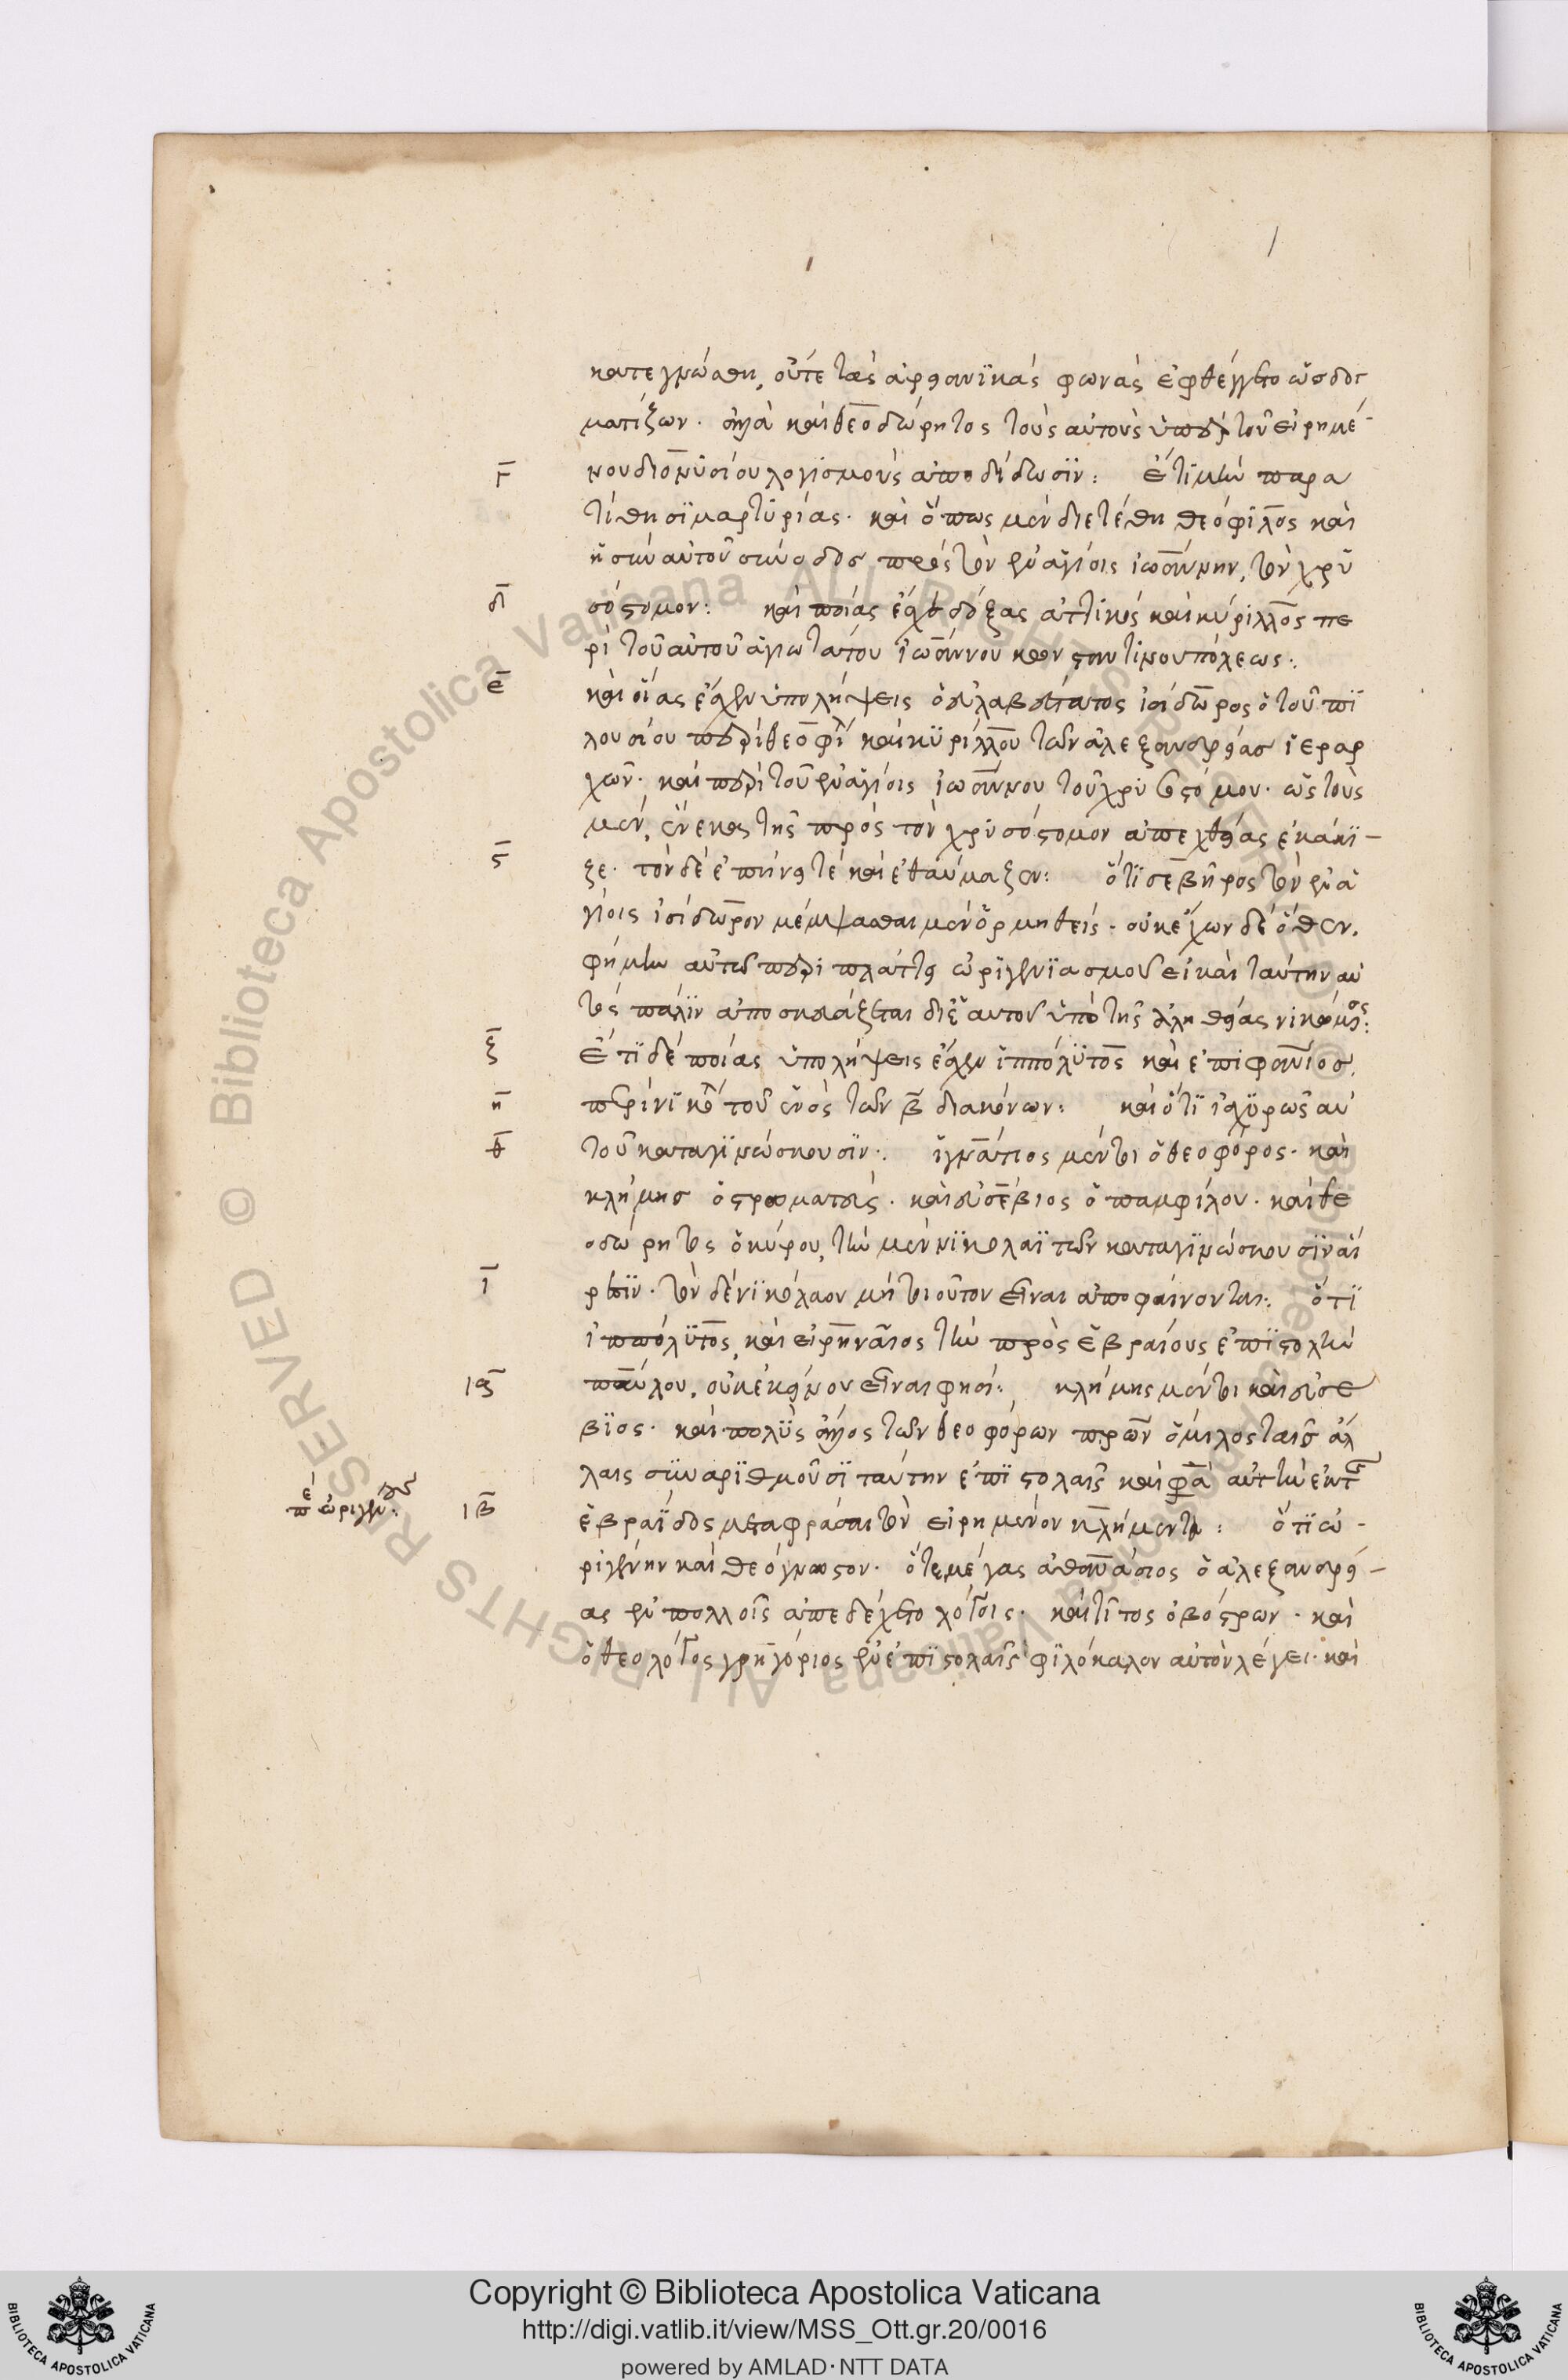 κατεγνώσθη, οὔτε τὰς ἀρειανϊκὰς φωνὰς ἐφθέγγετο ὡς δογ
ματίζων· ἀλλὰ καὶ θεοδώρητος τοὺς αὐτοὺς ὑπὲρ τοῦ εἰρημέ-
Γ νου διονϋσίου λογϊσμοὺς ἀποδίδωσϊν: ἔτι μὴν παρα
τίθησϊ μαρτϋρίας· καὶ ὅπως μὲν διετέθη θεόφιλος καὶ
ἡ σὺν αὐτοῦ σύνοδος πρὸς τὸν ἐν ἁγίοις ἰωάννην, τὸν χρϋ
δ σόστομον: καὶ ποίας ἔσχε δόξας ἀττικὸς καὶ κύριλλος πε
ρὶ τοῦ αὐτοῦ ἁγιωτάτου ἰωάννου κωνσταντίνουπόλεως:
ε καὶ οἵας ἔσχεν ὑπολήψεις ὁ εὐλαβέστατος ἰσίδωρος ὁ τοῦ πϊ
λουσίου περὶ θεοφίλ καὶ κϋρίλλου τῶν ἀλεξανδρείας ἱεραρ
χῶν· καὶ περὶ τοῦ ἐν ἁγίοις ἰωάννου τοῦ χρϋσοστόμου· ὡς τοὺς
μὲν, ἕνεκα τῆς πρὸς τὸν χρϋσόστομον ἀπεχθείας ἐκάκϊ-
ς ζε· τὸν δὲ ἐπῄνει τὲ καὶ ἐθαύμαζεν: ὅτϊ σεβῆρος τὸν ἐν ἁ
γίοις ἰσίδωρον μέμψασθαι μὲν ὁρμηθείς· οὐκ ἔχων δὲ ὅθεν,
φήμην αὐτῶ περὶ πλάττει ὠρϊγενϊασμοῦ εἰ καὶ ταύτην αὐ
τὸς πάλϊν ἀποσκευάζεται δι' ἑαυτοῦ ὑπὸ τῆς ἀληθείας νικώμενος:
ξ ἔτϊ δὲ ποίας ὑπολήψεις ἔσχεν ἱππόλϋτος καὶ ἐπιφάνιος,
η περὶ νϊκολ τοῦ ἑνὸς τῶν ζ διακόνων: καὶ ὅτϊ ἰσχϋρῶς αὐ
θ τοῦ καταγϊνώσκουσϊν: ἰγνάτιος μέντοι ὁ θεοφόρος· καὶ
κλήμης ὁ στρωματεύς· καὶ εὐσέβιος ὁ παμφίλου· καὶ θε
οδώρητος ὁ κύρου, τὴν μὲν νϊκολαϊτῶν καταγϊνώσκουσϊν αἵ
ι ρεσϊν· τὸν δὲ νϊκόλαον μὴ τοιοῦτον εἶναι ἀποφαίνονται: ὅτϊ
ἱππόλϋτος, καὶ εἰρηναῖος τὴν πρὸς ἑβραίους ἐπϊστολὴν
ια παύλου, οὐκ ἐκείνου εἶναι φησί: κλήμης μέντοι καὶ εὐσέ
βϊος· καὶ πολϋς ἄλλος τῶν θεοφόρων πρῶν ὅμιλος ταῖς ἄλ
λαις σϋναρϊθμοῦσϊ ταύτην ἐπϊστολαῖς καὶ φα αὐτὴν ἐκ τ
πε ὠριγένους: ιβ ἑβραΐδος μεταφράσαι τὸν εἰρημένον κλήμεντα: ὅτϊ ὠ-
ριγένην καὶ θεόγνωστον· ὅτε μέγας ἀθανάσιος ὁ ἀλεξανδρεί-
ας ἐν πολλοῖς ἀπεδέχετο λόγοις· καὶ τίτος ὁ βόστρων· καὶ
ὁ θεολόγος γρηγόριος ἐν ἐπϊστολαῖς φϊλόκαλον αὐτὸν λέγει· καὶ
Copyright © Biblioteca Apostolica Vaticana
http://digi.vatlib.it/view/MSS_Ott.gr.20/0016
powered by AMLAD·NTT DATA
BIBLIOTECA APOSTOLICA VATICANA
BIBLIOTECA APOSTOLICA VATICANA